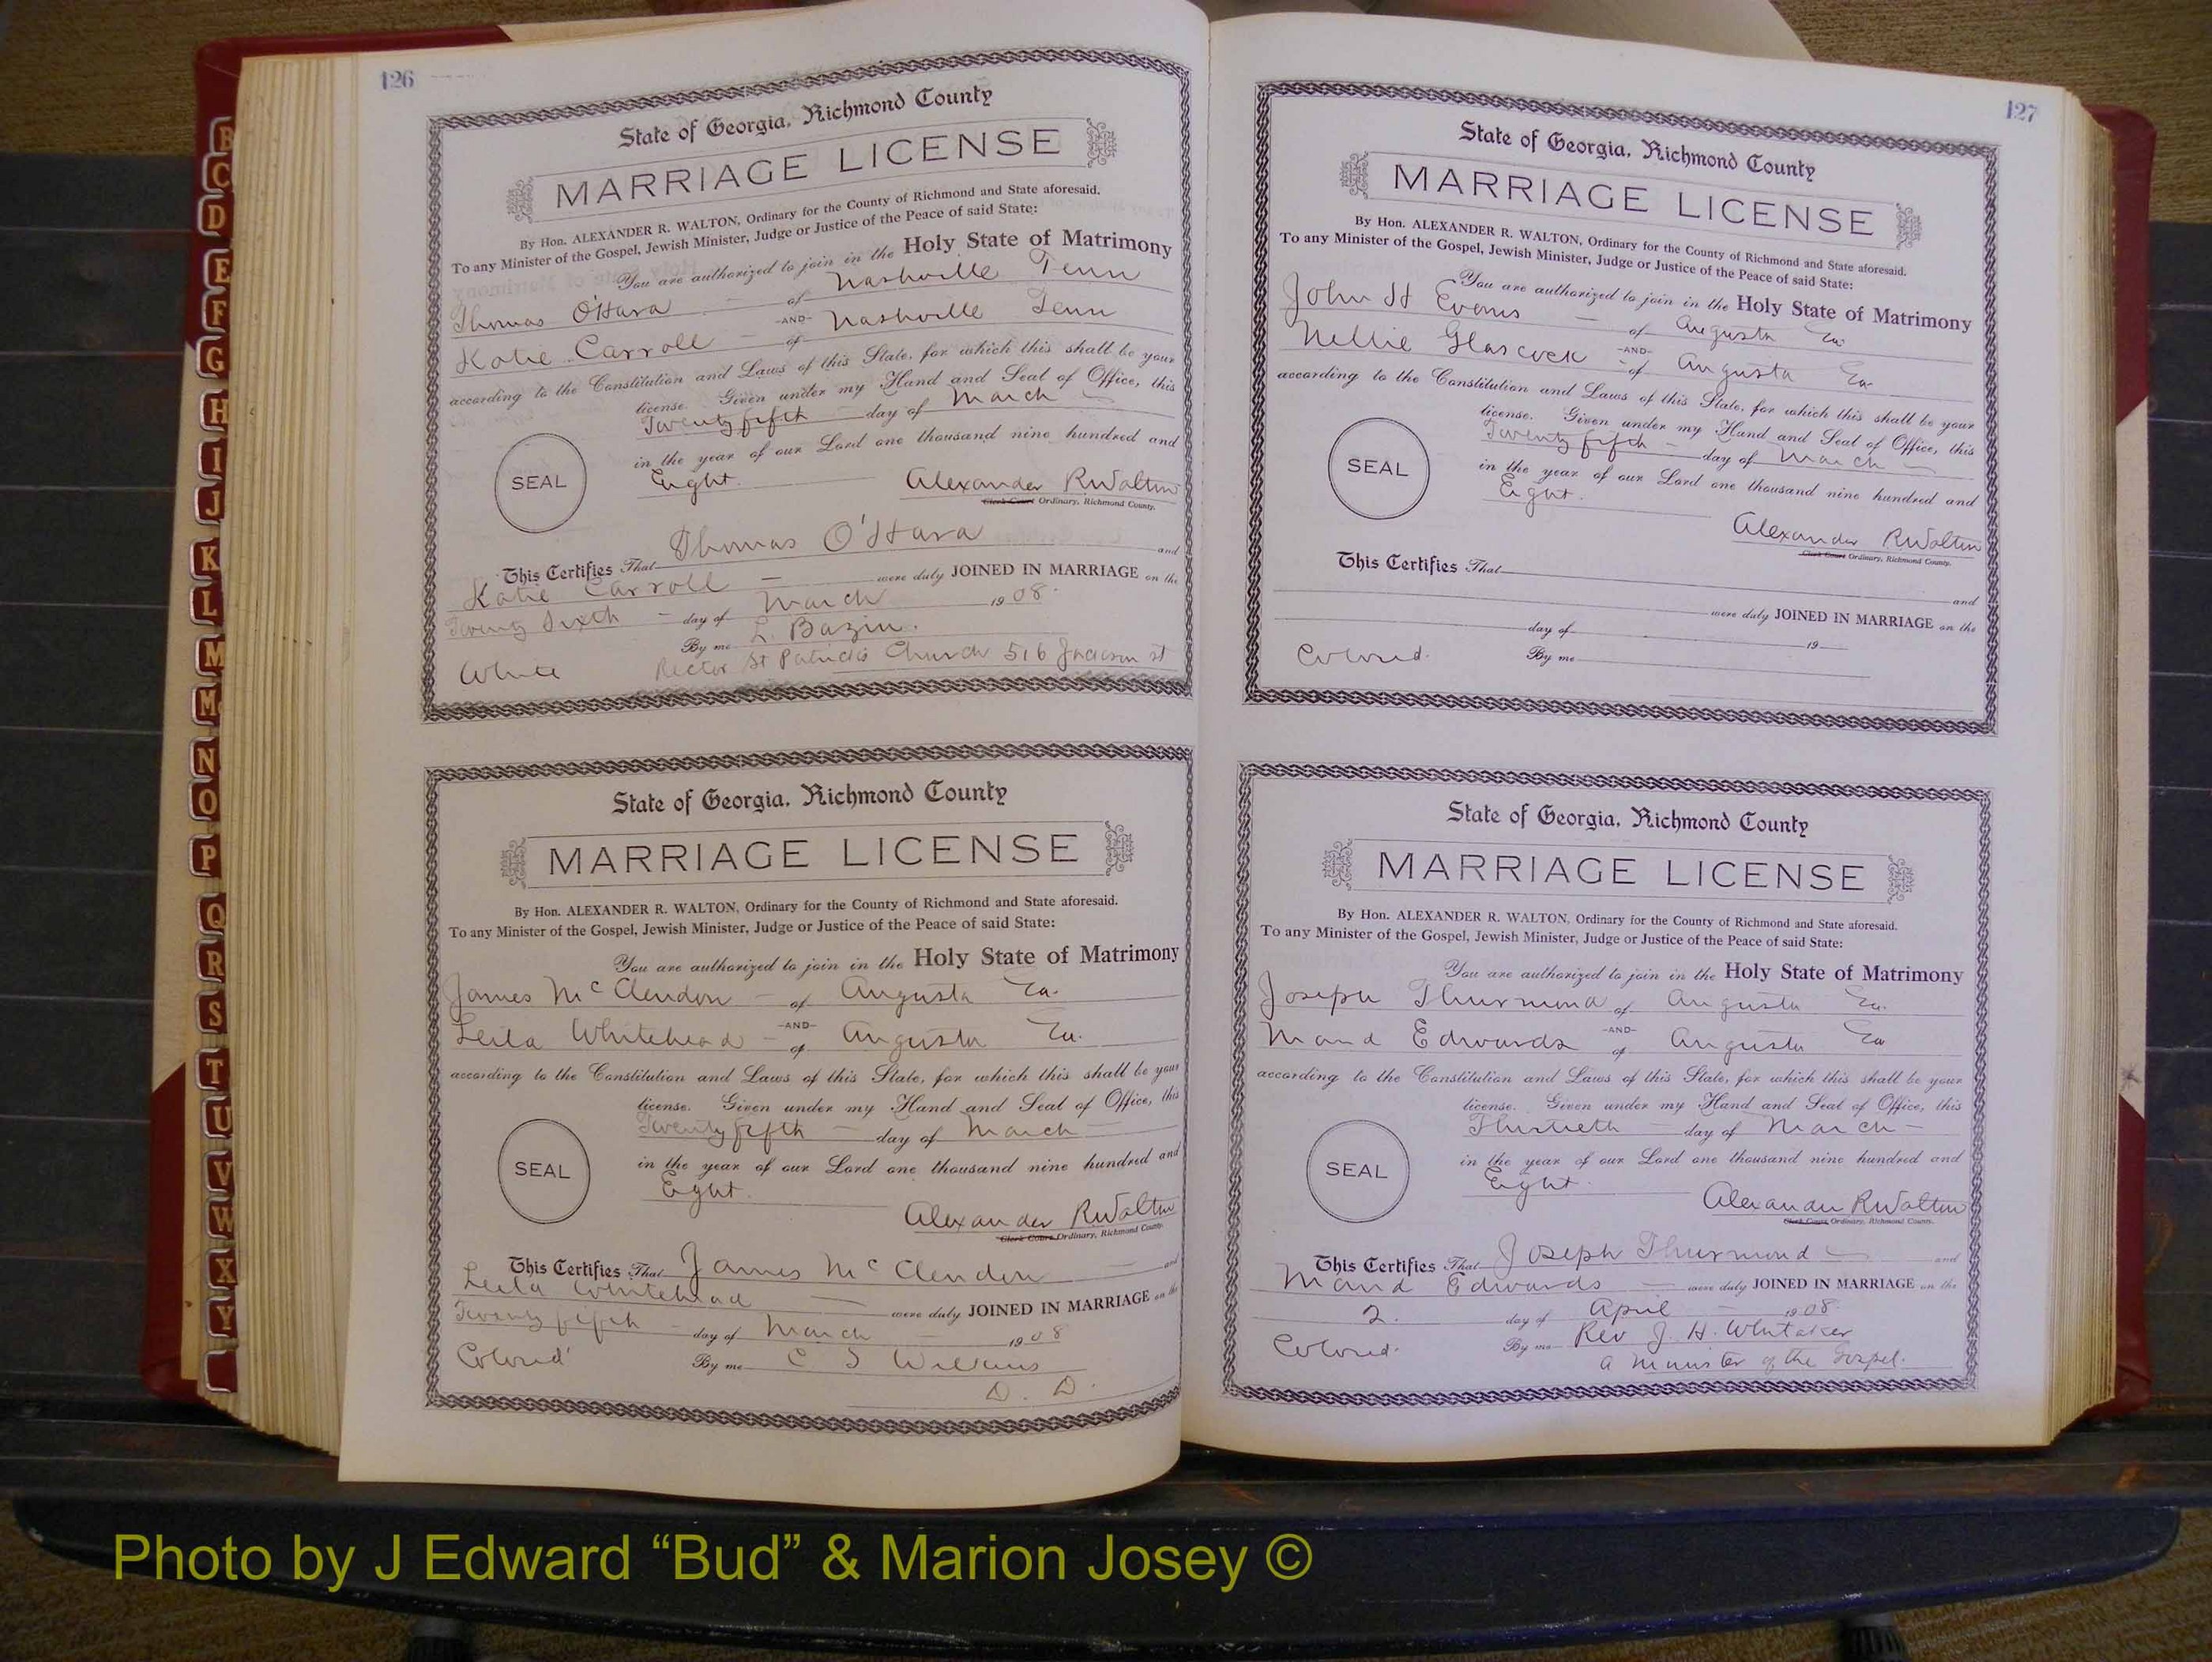 126
State of Georgia, Richmond County
MARRIAGE LICENSE
By Hon. ALEXANDER R. WALTON, Ordinary for the County of Richmond and State aforesaid.
To any Minister of the Gospel, Jewish Minister, Judge or Justice of the Peace of said State:
You are authorized to join in the Holy State of Matrimony
Thomas O'Hara of Nashville Tenn
-AND-
Katie Carroll of Nashville Tenn
according to the Constitution and Laws of this State, for which this shall be your
license. Given under my Hand and Seal of Office, this
Twenty fifth day of March
in the year of our Lord one thousand nine hundred and
Eight.
SEAL
Alexander R Walton
Clerk Court Ordinary, Richmond County.
This Certifies That Thomas O'Hara and
Katie Carroll were duly JOINED IN MARRIAGE on the
Twenty Sixth day of March 1908.
By me L. Bazin.
White Rector St Patricks Church 516 Jackson st
State of Georgia, Richmond County
MARRIAGE LICENSE
By Hon. ALEXANDER R. WALTON, Ordinary for the County of Richmond and State aforesaid.
To any Minister of the Gospel, Jewish Minister, Judge or Justice of the Peace of said State:
You are authorized to join in the Holy State of Matrimony
James McClendon of Augusta Ga.
-AND-
Leila Whitehead of Augusta Ga.
according to the Constitution and Laws of this State, for which this shall be your
license. Given under my Hand and Seal of Office, this
Twenty fifth day of March
in the year of our Lord one thousand nine hundred and
Eight.
SEAL
Alexander R Walton
Clerk Court Ordinary, Richmond County
This Certifies That James McClendon and
Leila Whitehead were duly JOINED IN MARRIAGE on the
Twenty fifth day of March 1908
Colored By me C S Wilkins
D. D.
127
State of Georgia, Richmond County
MARRIAGE LICENSE
By Hon. ALEXANDER R. WALTON, Ordinary for the County of Richmond and State aforesaid.
To any Minister of the Gospel, Jewish Minister, Judge or Justice of the Peace of said State:
You are authorized to join in the Holy State of Matrimony
John H Evans of Augusta Ga
-AND-
Nellie Glascock of Augusta Ga
according to the Constitution and Laws of this State, for which this shall be your
license. Given under my Hand and Seal of Office, this
Twenty fifth day of March
in the year of our Lord one thousand nine hundred and
Eight.
SEAL
Alexander R Walton
Clerk Court Ordinary, Richmond County.
This Certifies That and
were duly JOINED IN MARRIAGE on the
day of 19
Colored. By me
State of Georgia, Richmond County
MARRIAGE LICENSE
By Hon. ALEXANDER R. WALTON, Ordinary for the County of Richmond and State aforesaid.
To any Minister of the Gospel, Jewish Minister, Judge or Justice of the Peace of said State:
You are authorized to join in the Holy State of Matrimony
Joseph Thurmond of Augusta Ga.
-AND-
Maud Edwards of Augusta Ga
according to the Constitution and Laws of this State, for which this shall be your
license. Given under my Hand and Seal of Office, this
Thirtieth day of March
in the year of our Lord one thousand nine hundred and
Eight.
SEAL
Alexander R Walton
Clerk Court Ordinary, Richmond County.
This Certifies That Joseph Thurmond and
Maud Edwards were duly JOINED IN MARRIAGE on the
2. day of April 1908.
Colored. By me Rev J. H. Whitaker
a Minister of the Gospel.
B
C
D
E
F
G
H
I
J
K
L
M
Mc
N
O
P
Q
R
S
T
U
V
W
X
Y
Photo by J Edward “Bud” & Marion Josey ©